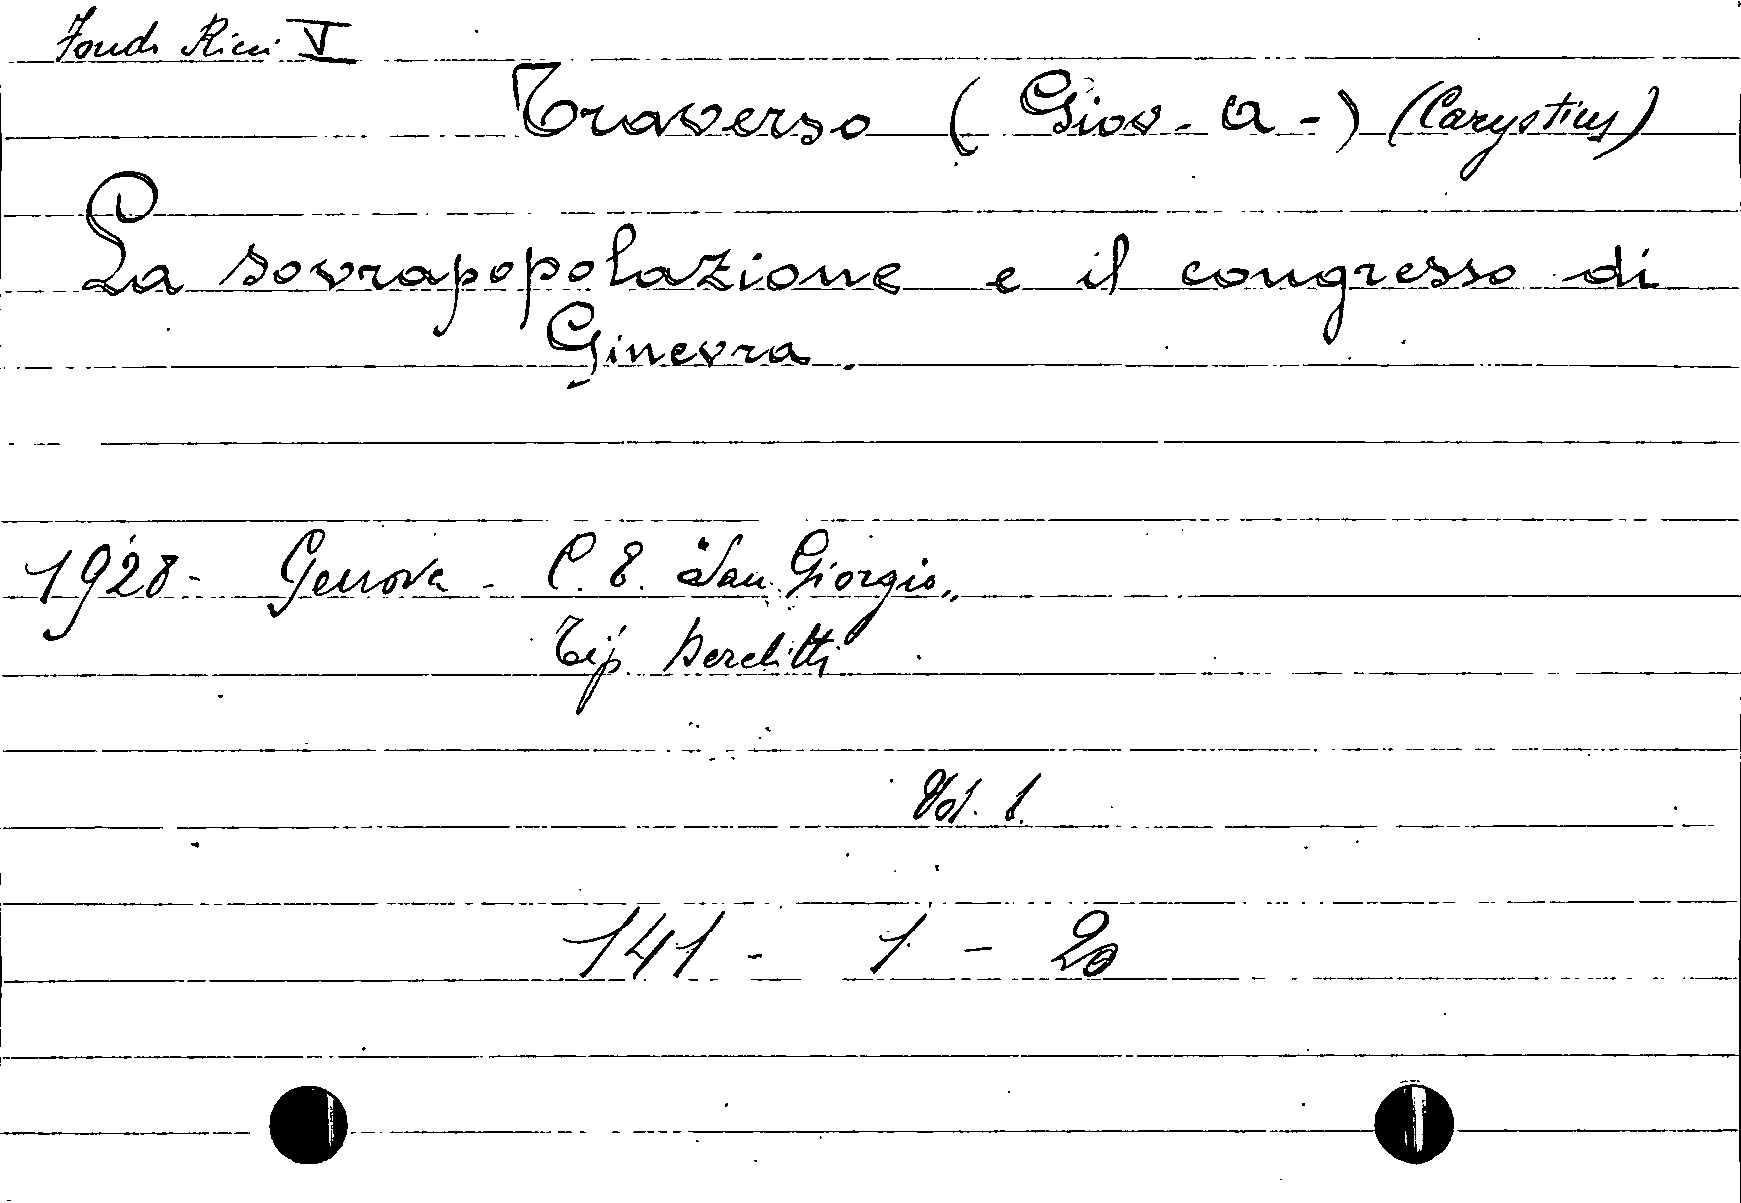 Fondo Ricci V
Traverso ( Giov. A -) (Carystius)
La sovrapopolazione e il congresso di
Ginevra.
1928 - Genova - C. E. "San Giorgio„
Tip. Derelitti
Vol. 1.
141 - 1 - 20